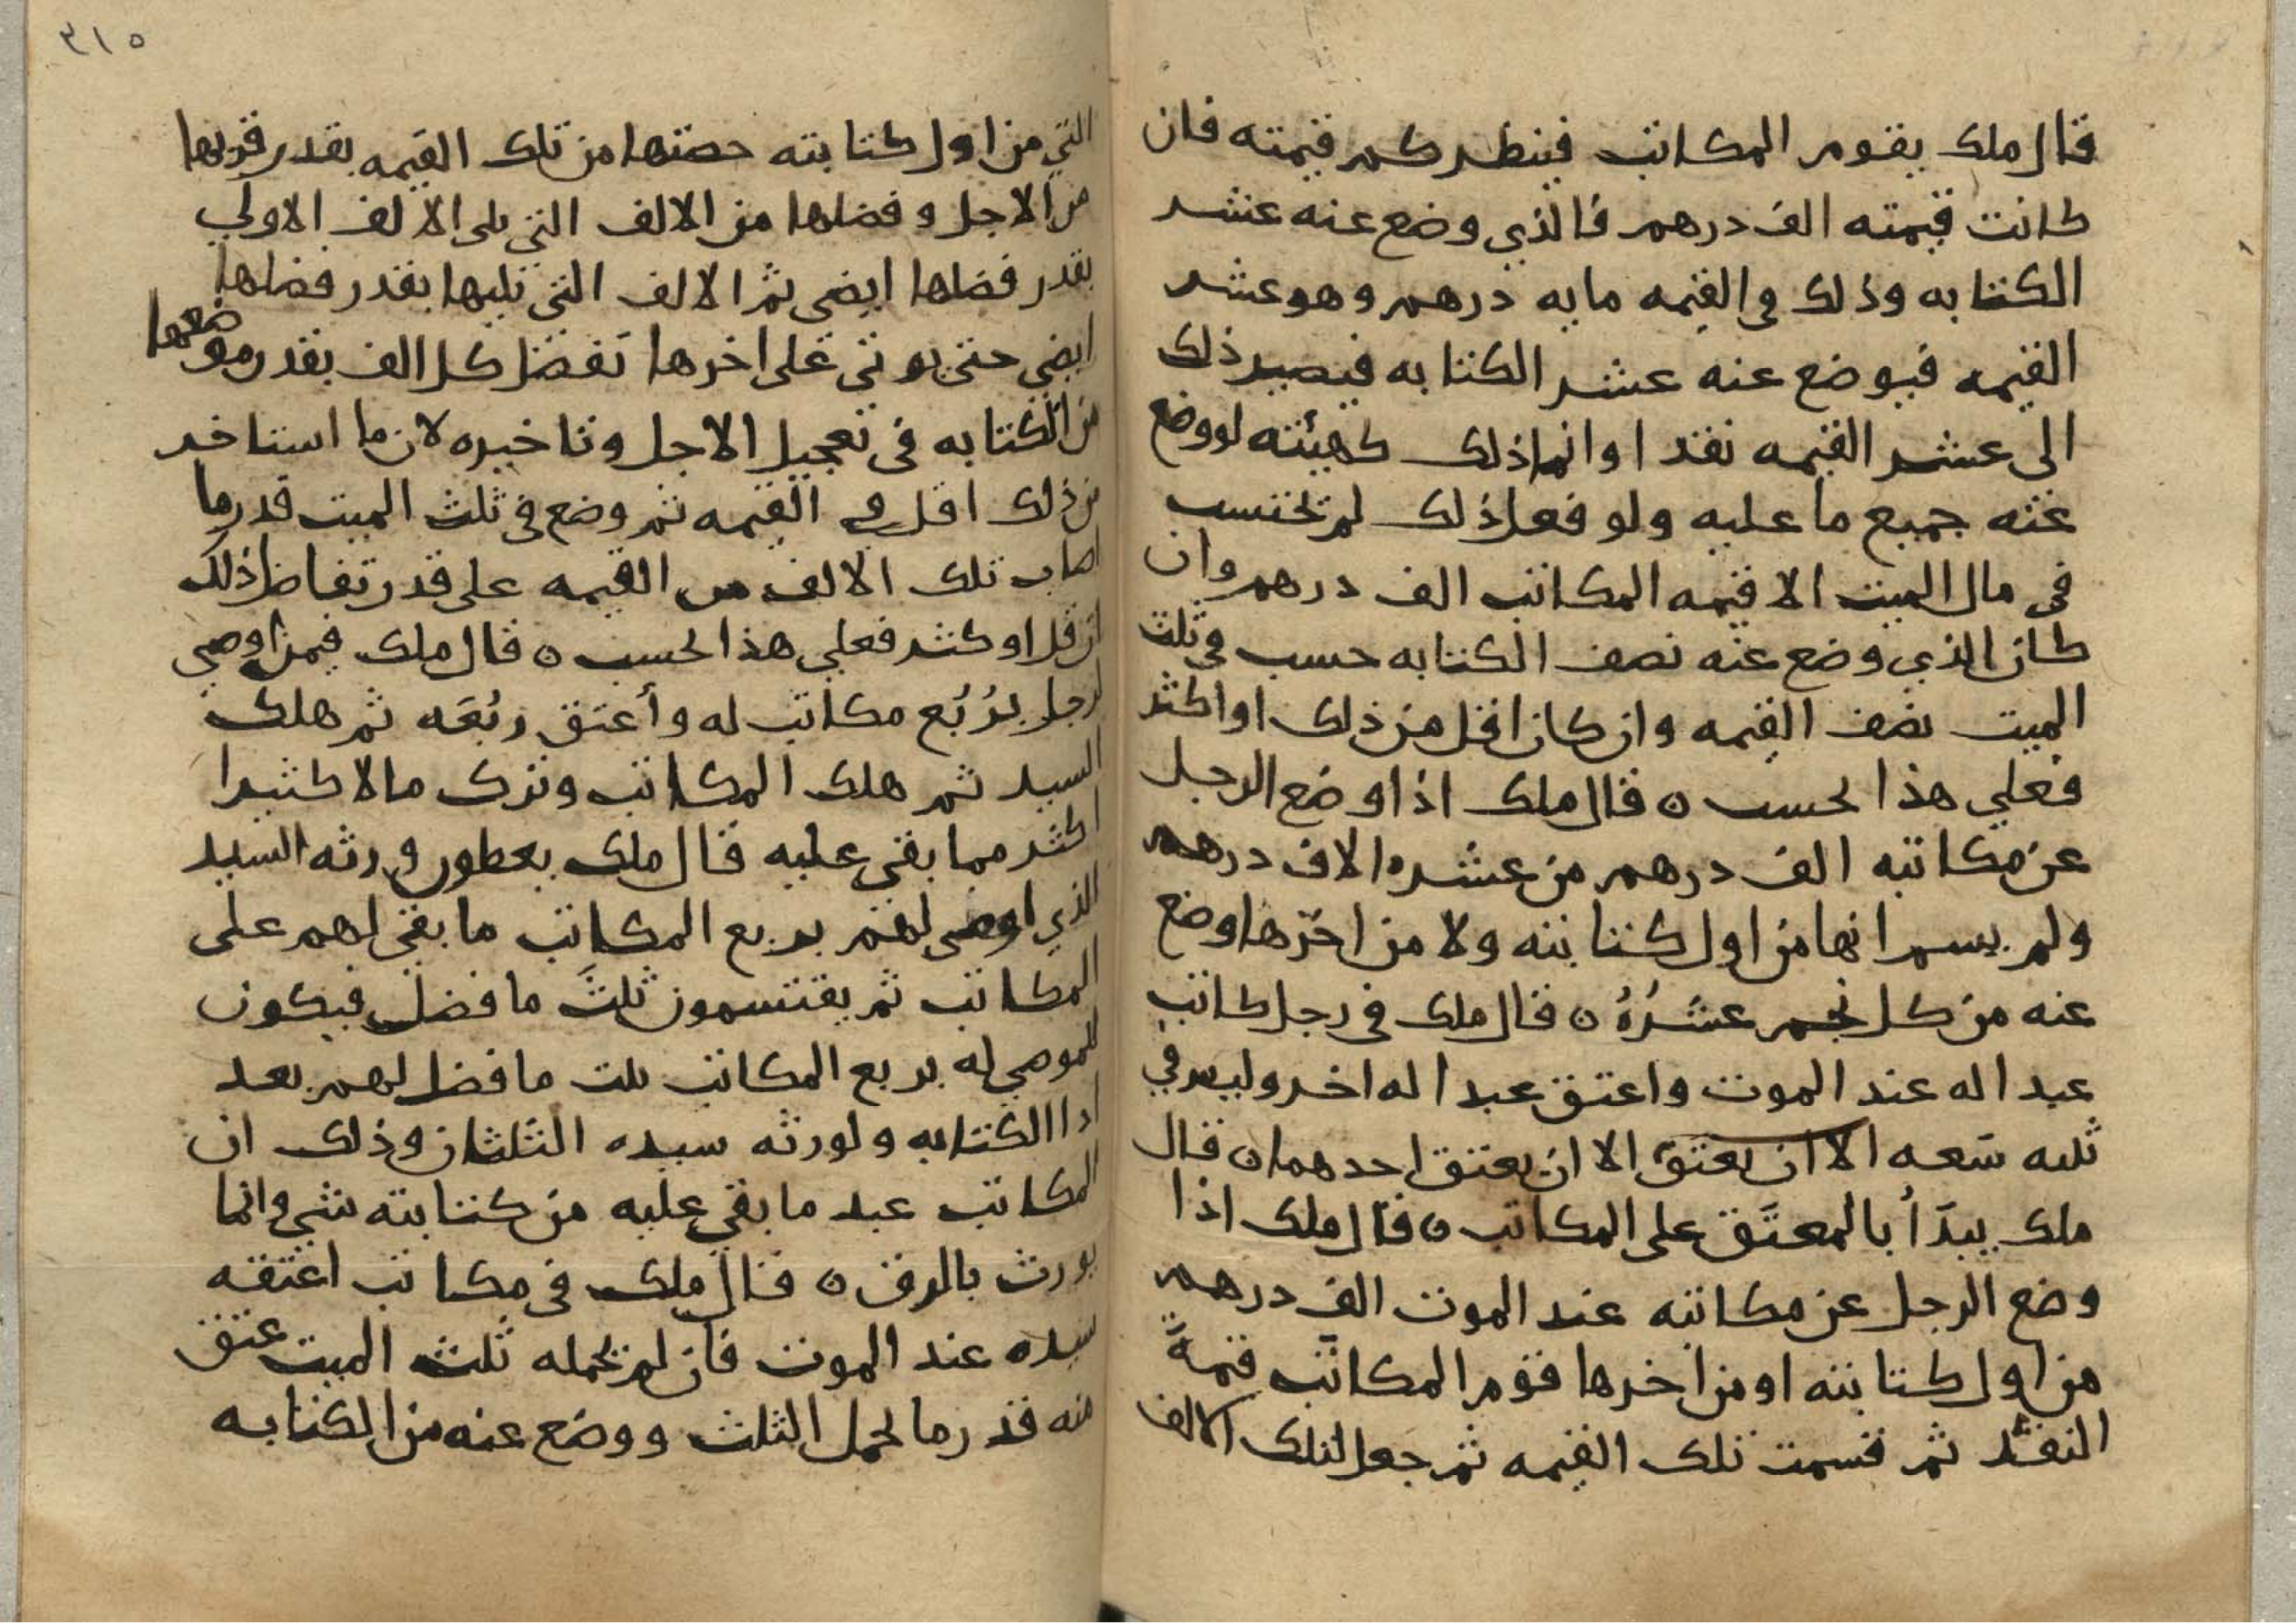 قال ملك يقوم المكاتب فينظر كم قيمته فان
كانت قيمته الف درهم فالذي وضع عنه عشر
الكتابه وذلك في القيمه مايه درهم وهو عشر
القيمه فيوضع عنه عشر الكتابه فيصير ذلك
الى عشر القيمه نقدا وانما ذلك كهيئته لو وضع
عنه جميع ما عليه ولو فعل ذلك لم تحتسب
في مال الميت الا قيمه المكاتب الف درهم وان
كان الذي وضع عنه نصف الكتابه حسب في ثلث
الميت نصف القيمه وان كان اقل من ذلك او اكثر
فعلي هذا لحسب ن قال ملك اذا وضع الرجل
عن مكاتبه الف درهم من عشره الاف درهم
ولم يسم انها من اول كتابته ولا من اخرها وضع
عنه من كل نجم عشره ن قال ملك في رجل كاتب
عبدا له عند الموت واعتق عبدا له اخر وليس في
ثلثه سعه الا ان يعتق الا ان يعتق احدهما ن قال
ملك يبدأ بالمعتق على المكاتب ن قال ملك اذا
وضع الرجل عن مكاتبه عند الموت الف درهم
من اول كتابته او من اخرها قوم المكاتب قيمة
النقد ثم قسمت تلك القيمه ثم جعل لتلك الالف
٣١٥
التي من اول كتابته حصتها من تلك القيمه بقدر قربها
من الاجل وفضلها من الالف التي تلى الالف الاولي
بقدر فضلها ايضى ثم الالف التي تليها بقدر فضلها
ايضي حتى يوتى على اخرها تفضل كل الف بقدر موضعها
من الكتابه في تعجيل الاجل وتاخيره لان ما استاخر
من ذلك اقل في القيمه ثم وضع في ثلث الميت قدر ما
اصاب تلك الالف من القيمه على قدر تفاضل ذلك
ان قل او كثر فعلي هذا لحسب ن قال ملك فيمن اوصى
لرجل بربع مكاتب له وأعتق ربعه ثم هلك
السيد ثم هلك المكاتب وترك مالا كثيرا
اكثر مما بقى عليه قال ملك يعطون ورثه السيد
الذي اوصى لهم بربع المكاتب ما بقى لهم على
المكاتب ثم يقتسمون ثلث ما فضل فيكون
للموصي له بربع المكاتب ثلث ما فضل لهم بعد
ادا الكتابه ولورثه سيده الثلثان وذلك ان
المكاتب عبد ما بقي عليه من كتابته شي وانما
يورث بالرق ن قال ملك في مكاتب اعتقه
سيده عند الموت فان لم يحمله ثلث الميت عتق
منه قدر ما لحمل الثلث ووضع عنه من الكتابه